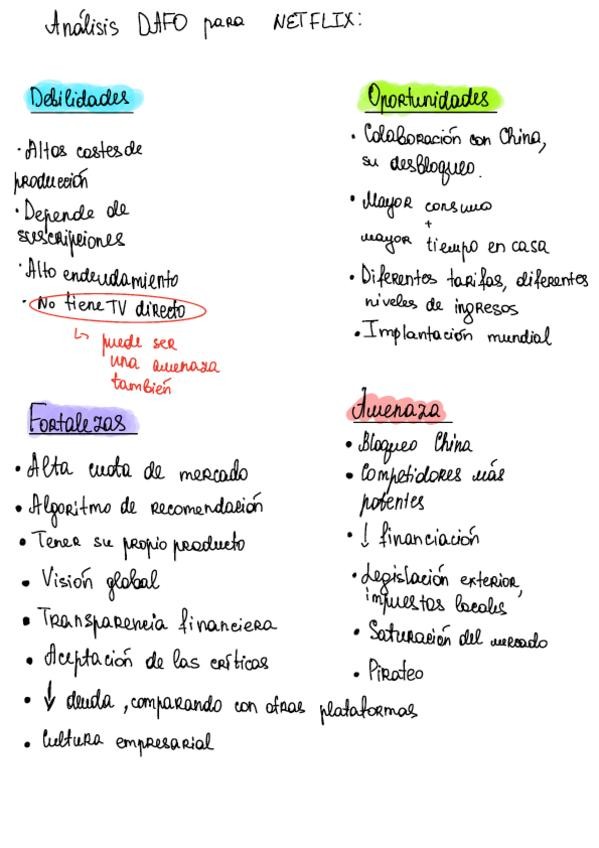 Análisis DAFO para NETFLIX:
Debilidades
· Altos costes de
producción
· Depende de
suscripciones
· Alto endeudamiento
· No tiene TV directo
↳ puede ser
una amenaza
también
Oportunidades
· Colaboración con China,
su desbloqueo.
· Mayor consumo
+
mayor tiempo en casa
· Diferentes tarifas, diferentes
niveles de ingresos
· Implantación mundial
Fortalezas
• Alta cuota de mercado
• Algoritmo de recomendación
• Tener su propio producto
• Visión global
• Transparencia financiera
• Aceptación de las críticas
• ↓ deuda, comparando con otras plataformas
• Cultura empresarial
Amenaza
• Bloqueo China
• Competidores más
potentes
• ↓ financiación
• Legislación exterior,
impuestos locales
• Saturación del mercado
• Pirateo